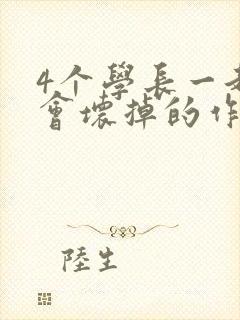 4个學長一
會壞掉的作
陸生